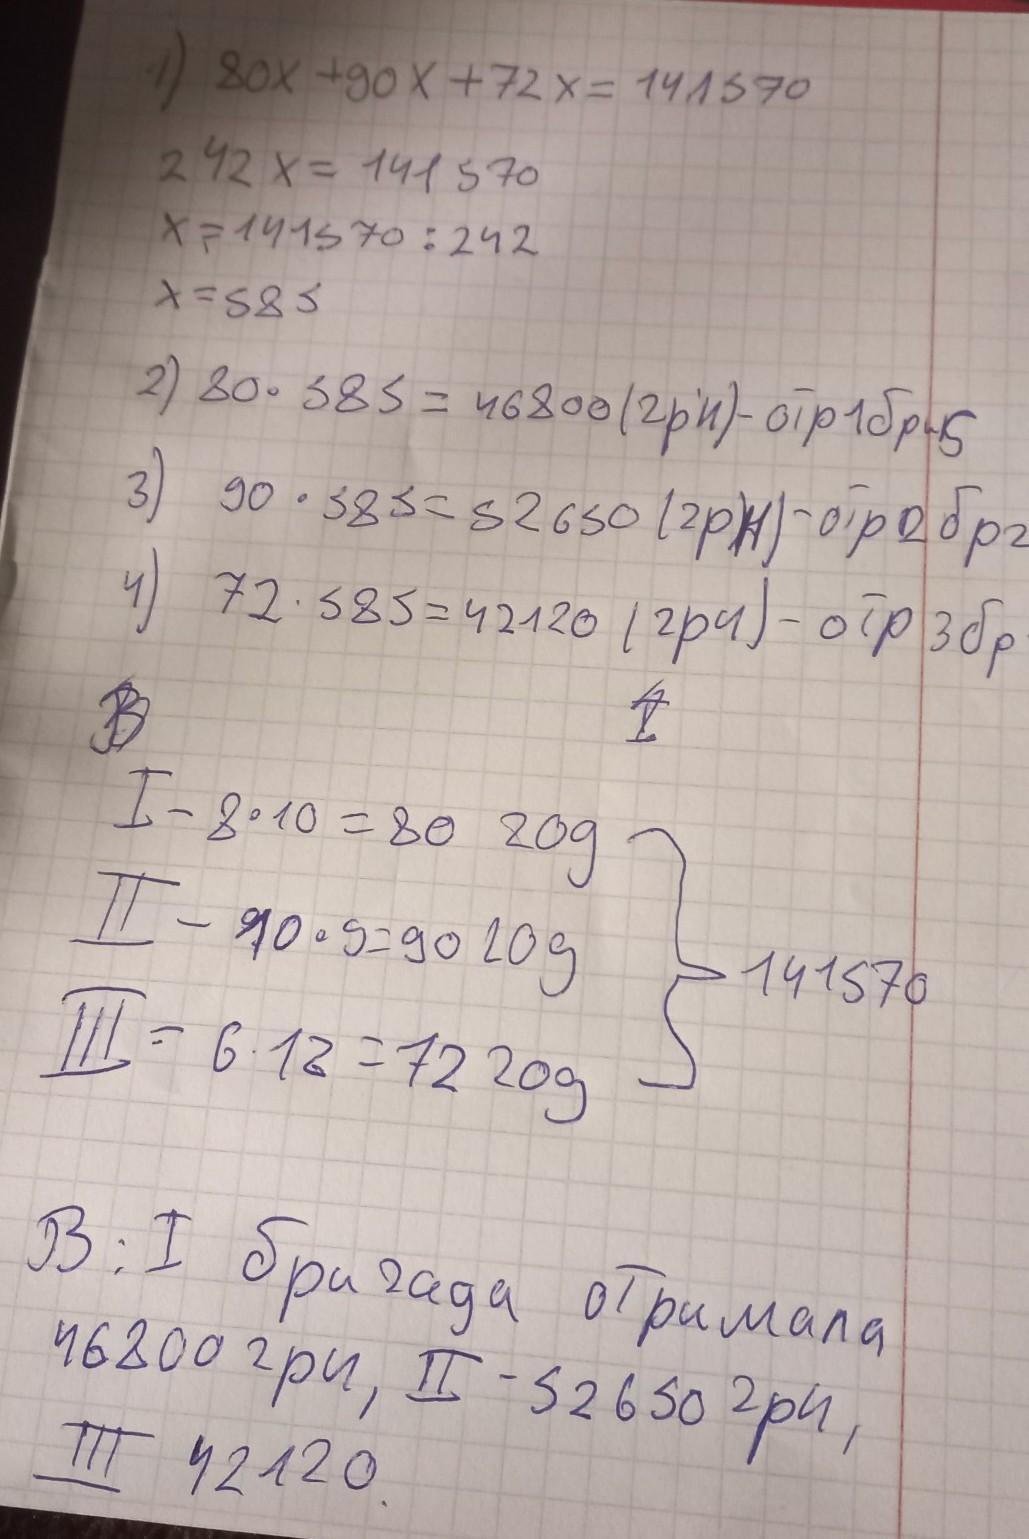 1) 80x+90x+72x=141570
242x=141570
x=141570:242
x=585
2) 80·585=46800(грн)-отр1бриг
3) 90·585=52650(грн)-отр2брг
4) 72·585=42120(грн)-отр3бр
В I
I-8·10=80 год
II-10·9=90год
III=6·12=72год
141570
В:I бригада отримала
46800грн, II-52650грн,
III 42120.